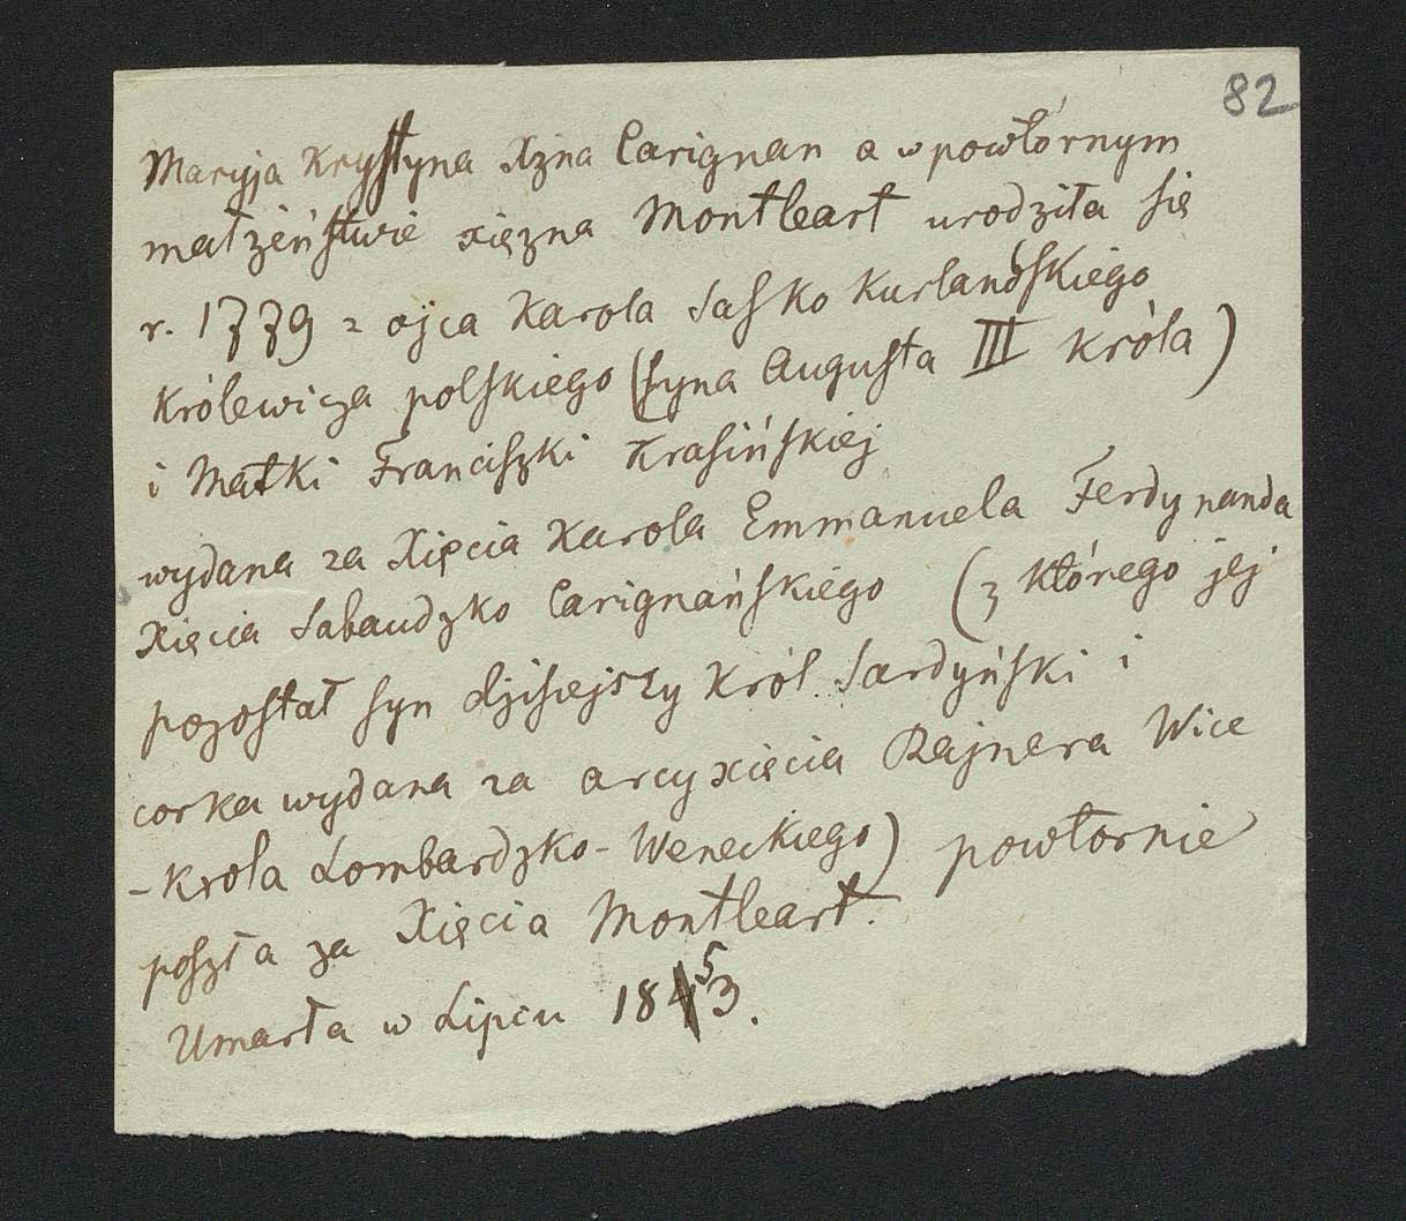 82
Maryja Krystyna Xzna Carignan a w powtórnym
małżeństwie xiężna Montleart urodziła się
r. 1779 z ojca Karola Sasko Kurlandskiego
Królewicza polskiego (syna Augusta III króla)
i Matki Franciszki Krasińskiej
wydana za Xięcia Karola Emmanuela Ferdynanda
Xięcia Sabaudzko Carignańskiego (z którego jej
pozostał syn dzisiejszy Król Sardyński i
corka wydana za arcyxięcia Rajnera Wice
-Krola Lombardzko-Weneckiego) powtornie
poszła za Xięcia Montleart.
Umarła w Lipcu 1853.